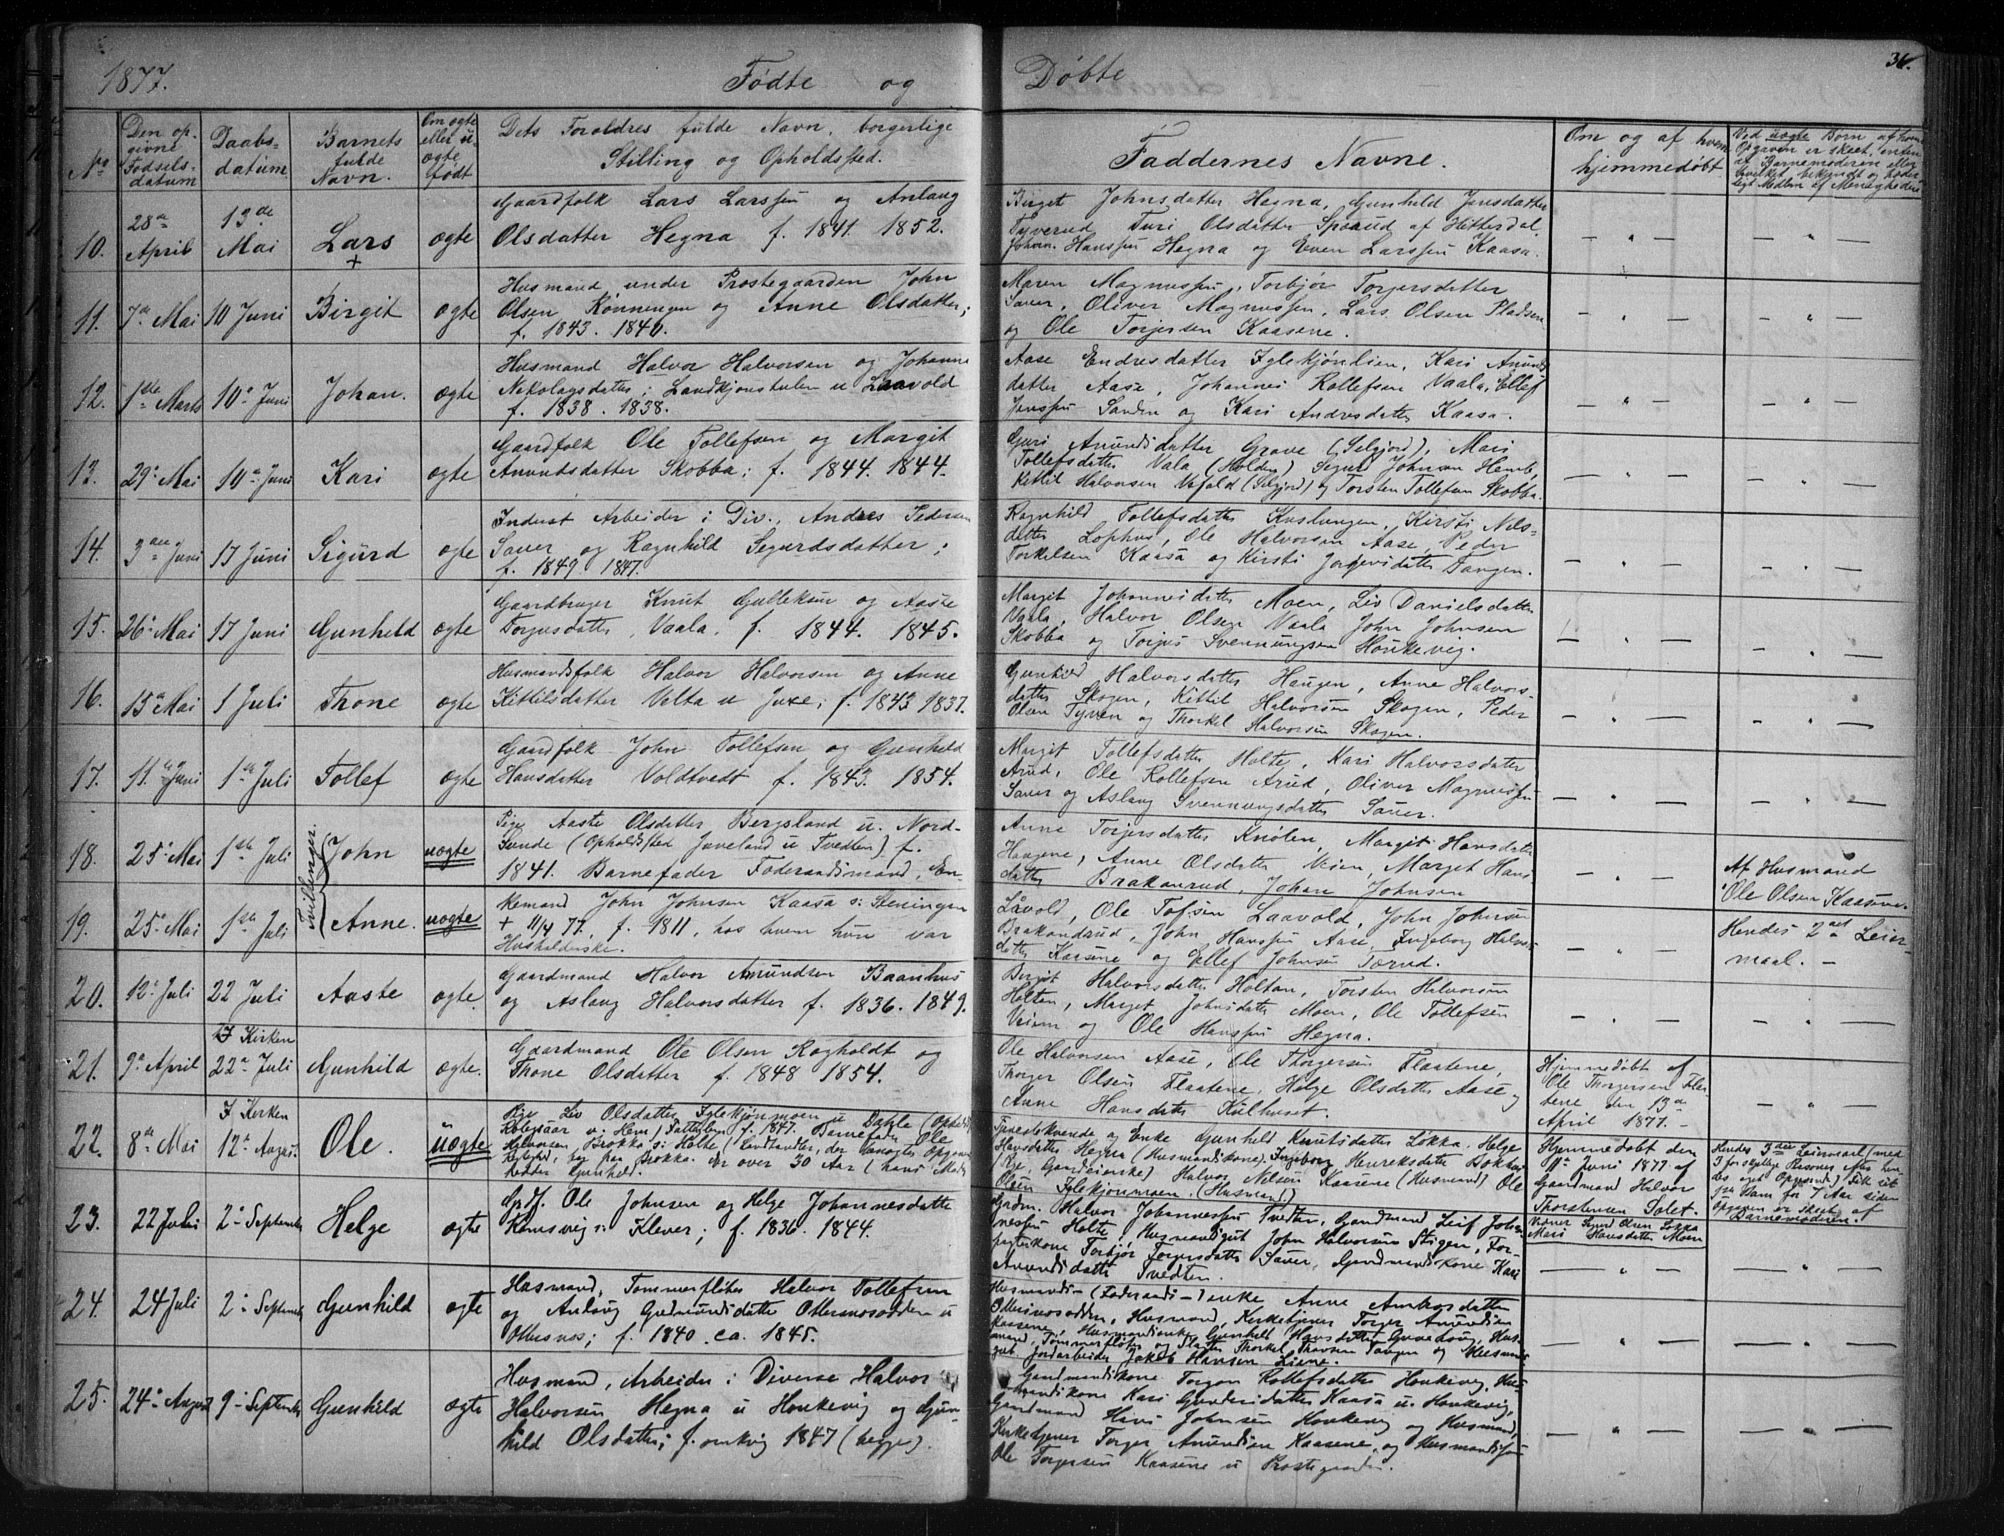 1877.
Fødte og
Døbte
36.
No
Den op-
givne
Fødsels-
datum
Daabs-
datum
Barnets
fulde
Navn.
Om ægte
eller u-
ægte
født
Dets Forældres fulde Navn, borgerlige
Stilling og Opholdsted.
Faddernes Navne.
Om og af hvem
hjemmedøbt
Ved uægte Børn af hvem
Opgaven er skeet, enten
af Barnemoderen eller
hvilket bekjendt og hæder-
ligt Medlem af Menigheden
10.
28de
April
13de
Mai
Lars
+
ægte
Gaardfolk Lars Larssen og Anlaug
Olsdatter Hegna f. 1841. 1852.
Birget Johnsdatter Hegna, Gunhild Jonsdatter
Tyverud Turi Olsdatter Spaaud af Hitterdal,
Johan Hanssen Hegna og Even Larssen Kaasa.
11.
7de Mai
10 Juni
Birgit
ægte
Husmand under Prostegaarden John
Olsen Rønningen og Anne Olsdatter;
f. 1843. 1846.
Maren Magnussen, Torbjør Torjersdatter
Sauer, Oliver Magnussen, Lars Olsen Pladsen
og Ole Torjersen Kaasene.
12.
1ste Marts
10de Juni
Johan.
ægte
Husmand Halvor Halvorsen og Johanne
Nikolaysdatter; Landkjønstulen u Laavold
f. 1838. 1838.
Aase Endresdatter Iglekjønlien, Kari Anund-
datter Aase, Johannes Rollefsen Vaala, Ellef
Jenssen Sanden og Kari Andresdatter Kaasa.
13.
29de Mai
10de Juni
Kari
ægte
Gaardfolk Ole Tollefsen og Margit
Anundsdatter Skobba; f. 1844. 1844.
Guri Anundsdatter Grave (Selgjord), Mari
Tollefsdatter Vala (Holden) Segur Johnsen Hemb,
Kittil Halvorsen Vefald (Selgjord) og Torsten Tollefsen Skobba.
14.
3die Juni
17 Juni
Sigurd
ægte
Inderst Arbeider i Div., Andres Pedersen
Sauer og Ragnhild Segurdsdatter;
f. 1849. 1847.
Ragnhild Tollefsdatter Kuslungen, Kirsti Nils-
datter Lophus, Ole Halvorsen Aase, Peder
Torkelsen Kaasa og Kirsti Jørgensdatter Tangen.
15.
26de Mai
17 Juni
Gunhild
ægte
Gaardbruger Knut Gulleksen og Aaste
Torjusdatter, Vaala. f. 1844. 1845.
Margit Johannesdatter Moen, Liv Danielsdatter
Vaala, Halvor Olsen Vaala John Johnsen
Skobba og Torjus Svennungsen Honkevig.
16.
15de Mai
1 Juli
Trone
ægte
Husmandsfolk Halvor Halvorsen og Anne
Kittilsdatter Velta u Juxe; f. 1843 1837.
Gunhild Halvorsdatter Haugen, Anne Halvors-
datter Skogen, Kittil Halvorsen Skogen, Peder
Olsen Tyven og Thorkel Halvorsen Skogen.
17.
11te Juni
1ste Juli
Tollef
ægte
Gaardfolk John Tollefsen og Gunhild
Hansdatter Voldtvedt f. 1843. 1854.
Margit Tollefsdatter Holte, Kari Halvorsdatter
Arud, Ole Rollefsen Arud, Oliver Magnussen
Sauer og Aslaug Svennungsdatter Sauer.
18.
25de Mai
1ste Juli
Tvillinger.
John
uægte
Pige Aaste Olsdatter Bergsland u. Nord-
(Opholdsted Juveland u Tvedten) f.
1841. Barnefader Føderaadsmand, En-
Anne Torjersdatter Knølen, Margit Hansdatter
Haugene, Anne Olsdatter Veien, Marget Hans
datter Brakanrud, Johan Johnsen
Af Husmand
Ole Olsen Kaasene.
19.
25de Mai
1ste Juli
Anne.
uægte
kemand John Johnsen Kaasa s: Steningen
+ 11/4 77, f. 1811, hos hvem hun var
Husholderske.
Låvold, Ole Tofsen Laavold, John Johnsen
Brakandrud, John Hanssen Aase, Ingeborg Halvor
datter Kaasene og Ellef Johnsen Tørud.
Hendes 2det Leier-
maal. —
20.
12te Juli
22 Juli
Aaste
ægte
Gaardmand Halvor Anundsen Baanhus
og Aslaug Halvorsdatter f. 1836. 1849.
Birgit Halvorsdatter Holtan, Torsten Halvorsen
Holten, Marget Johnsdatter Moen, Ole Tollefsen
Veien og Ole Hanssen Hegna.
21.
9de April
I Kirken
22de Juli
Gunhild
ægte.
Gaardmand Ole Olsen Rogholdt og
Trone Olsdatter f. 1848 1854.
Ole Halvorsen Aase, Ole Thorgersen Flaatene,
Thorger Olsen Flaatene, Helge Olsdatter Aase og
Anne Hansdatter Kulhuset.
Hjemmedøbt af
Ole Thorgersen Fla-
tene den 13de
April 1877. —
22.
8de Mai
I Kirken
12te August
Ole.
uægte
Pige Liv Olsdatter Iglekjønmoen u Dahle (Ophold
f. 1847. Barnefader Ole
Halvorsen Brokka s: Holte
paa Brokka. over 30 Aar (hans Moder
hedder Gunhild.
og Enke Gunhild Knutsdatter Løkka, Helge
Hansdatter Hegna (Husmandskone), Ingeborg Henriksdatter
Halvor Nelsen Kaasene (Husmand) Ole
Olsen Iglekjønmoen. (Husmand.)
Hjemmedøbt den
Juni 1877 af
Gaardmand Halvor
Thorstensen Solet.
Hendes 3die Leiermaal (med
3 forskjellige
for 7 Aar siden
Opgaven er skeet af
Barnemoderen.
Mari Hansdatter Moen
23.
22 Juli
2den September
Helge
ægte
Grdf. Ole Johnsen og Helge Johannesdatter
s: Klever; f. 1836. 1844.
Grdm. Halvor Johannessen Tvedten, Gaardmand Leif Johan-
nessen Holte, John Halvorsen Stigen, For-
Torbjør Torjersdatter Sauer, Gaardmandskone Kari
Anundsdatter Tvedten.
24.
24 Juli
2den September
Gunhild
ægte
Husmand, Tømmerfløter Halvor Tollefsen
og Aslaug Gudmundsdatter Otternesodden u
Otternes; f. 1840. ca. 1845.
Husmands- (Føderaads-) enke Anne Ambrosdatter
Otternesodden, Husmand, Kirketjener Torger Anundsen
Kaasene, Husmandsenke Gunhild Hansdatter
Thorkel Tangen og
Jordarbeider Jakob Hansen Liane.
25.
24de August
9de September
Gunhild
ægte
Husmand, Arbeider i Diverse Halvor
Halvorsen Hegna u Honkevig og Gun-
hild Olsdatter; f. omkrig 1847 (begge).
Gaardmandskone Torgon Rollefsdatter Honkevig, Hus-
mandskone Kari Gundersdatter Kaasa u. Honkevig,
Gaardmand Hans Johnsen Honkevig og Husmand,
Kirketjener Torger Anundsen Kaasene, og Husmandssøn
Ole Torgersen Kaasene u Prostegaarden.